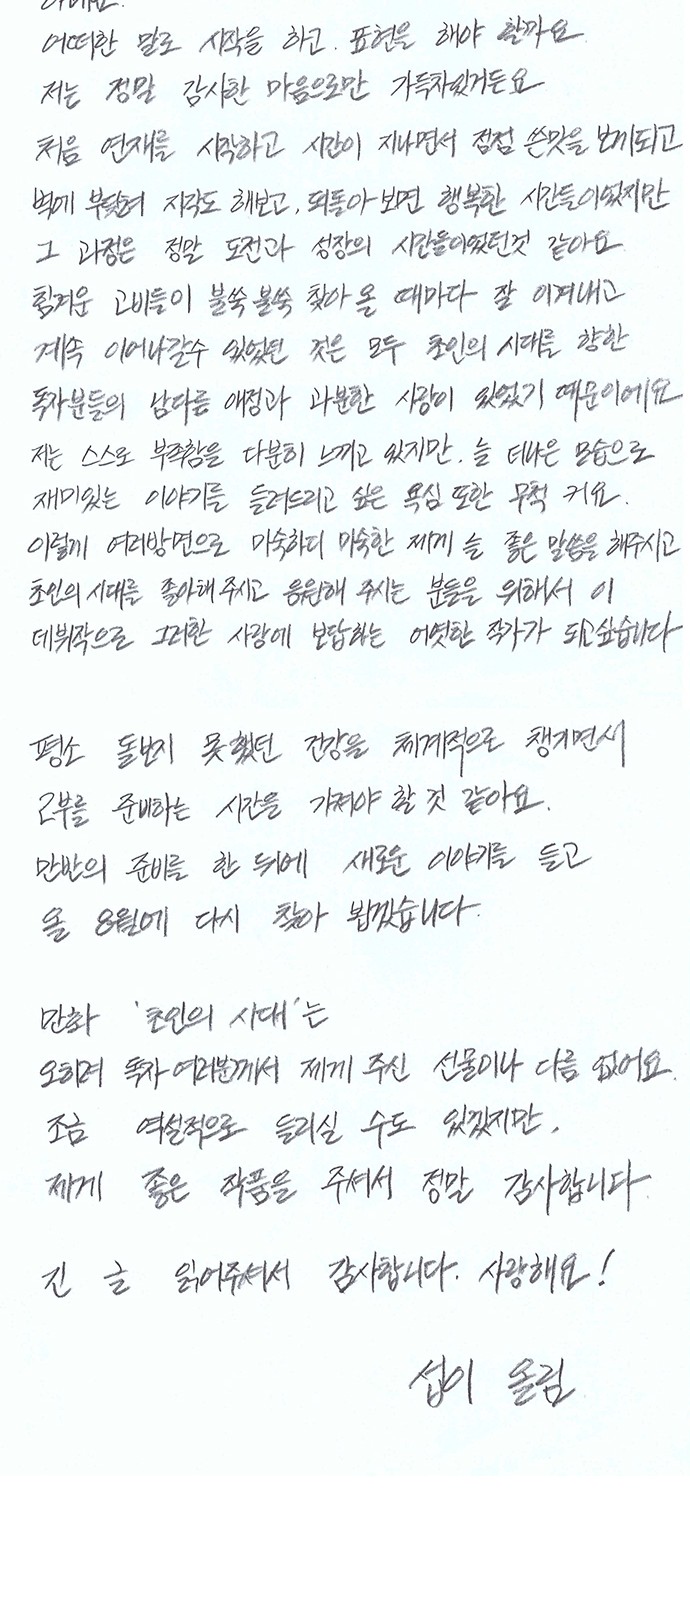 어떠한 말로 시작을 하고. 표현을 해야 할까요
저는 정말 감사한 마음으로만 가득차있거든요
처음 연재를 시작하고 시간이 지나면서 점점 쓴맛을 보게되고
벽에 부딪혀 지각도 해보고, 되돌아 보면 행복한 시간들이었지만
그 과정은 정말 도전과 성장의 시간들이었던것 같아요.
힘겨운 고비들이 불쑥불쑥 찾아 올 때마다 잘 이겨내고
계속 이어나갈수 있었던 것은 모두 초인의 시대를 향한
독자분들의 남다름 애정과 과분한 사랑이 있었기 때문이에요
저는 스스로 부족함을 다분히 느끼고 있지만. 늘 더나은 모습으로
재미있는 이야기를 들려드리고 싶은 욕심 또한 무척 커요.
이렇게 여러방면으로 미숙하디 미숙한 제게 늘 좋은 말씀을 해주시고
초인의 시대를 좋아해 주시고 응원해 주시는 분들을 위해서 이
데뷔작으로 그러한 사랑에 보답하는 어엿한 작가가 되고싶습니다
평소 돌보지 못했던 건강을 체계적으로 챙기면서
2부를 준비하는 시간을 가져야 할 것 같아요.
만반의 준비를 한 뒤에 새로운 이야기를 들고
올 8월에 다시 찾아 뵙겠습니다.
만화 '초인의 시대'는
오히려 독자 여러분께서 제게 주신 선물이나 다름 없어요.
조금 역설적으로 들리실 수도 있겠지만,
제게 좋은 작품을 주셔서 정말 감사합니다.
긴 글 읽어주셔서 감사합니다. 사랑해요!
섭이 올림